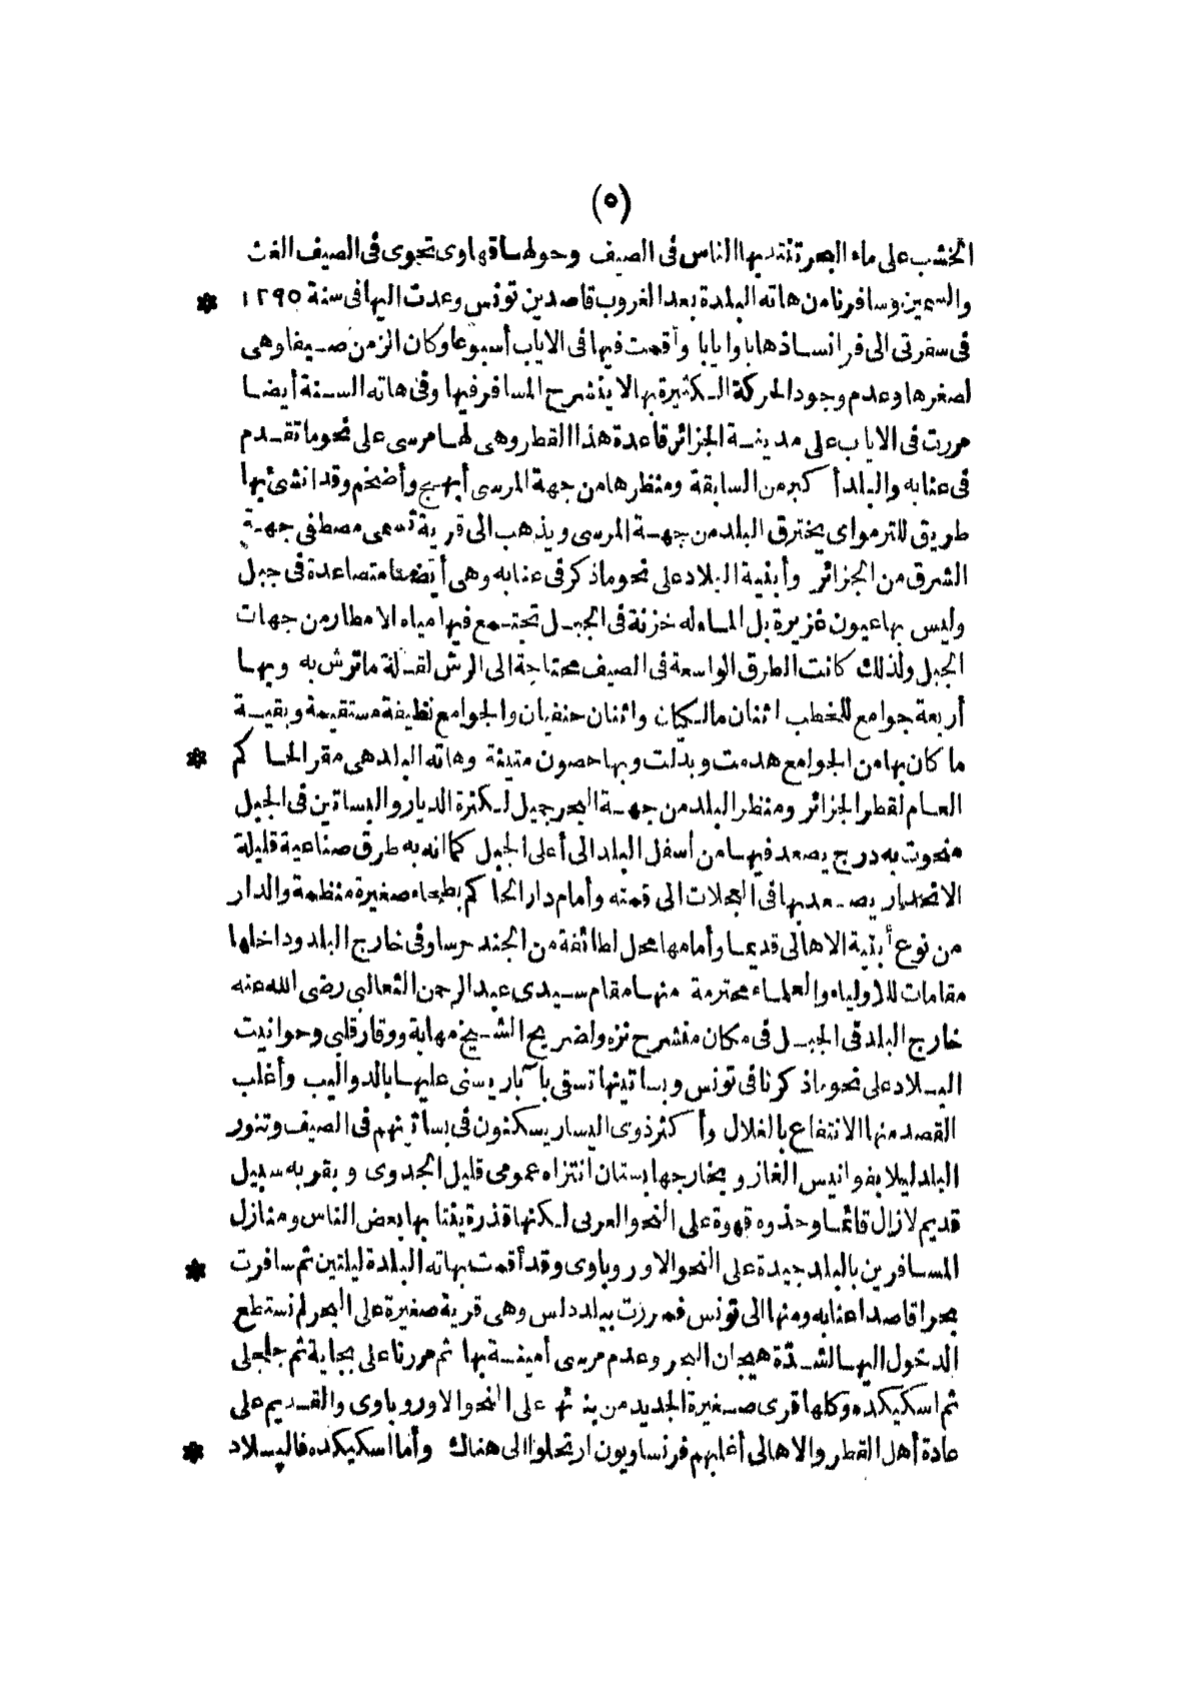 (٥)
الخشب على ماء البحر تنتديها الناس فى الصيف وحولها قهاوى تحوى فى الصيف الغث
والسمين وسافرنا من هاته البلدة بعد الغروب قاصدين تونس وعدت اليها فى سنة ١٢٩٥ *
فى سفرتى الى فرانسا ذهابا وايابا وأقمت فيها فى الاياب أسبوعا وكان الزمن صيفا وهى
لصغرها وعدم وجود الحركة الكثيرة بها لا ينشرح المسافر فيها وفى هاته السنة أيضا
مررت فى الاياب على مدينة الجزائر قاعدة هذا القطر وهى لها مرسى على نحو ما تقدم
فى عنابه والبلد أكبر من السابقة ومنظرها من جهة المرسى أبهج وأضخم وقد انشئ بها
طريق للترمواى يخترق البلد من جهة المرسى ويذهب الى قرية تسمى مصطفى جهة
الشرق من الجزائر وأبنية البلاد على نحو ما ذكر فى عنابه وهى أيضا متصاعدة فى جبل
وليس بها عيون غزيرة بل الماء له خزنة فى الجبل تجتمع فيها مياه الامطار من جهات
الجبل ولذلك كانت الطرق الواسعة فى الصيف محتاجة الى الرش لقلة ما ترش به وبها
أربعة جوامع للخطب اثنان مالكيان واثنان حنفيان والجوامع نظيفة مستقيمة وبقية
ما كان بها من الجوامع هدمت وبدّلت وبها حصون متينة وهاته البلد هى مقر الحاكم *
العام لقطر الجزائر ومنظر البلد من جهة البحر جميل لكثرة الديار والبساتين فى الجبل
منحوت به درج يصعد فيها من أسفل البلد الى أعلى الجبل كما انه به طرق صناعية قليلة
الانحدار يصعد بها فى العجلات الى قمته وأمام دار الحاكم بطحاء صغيرة منظمة والدار
من نوع أبنية الاهالى قديما وأمامها محل لطائفة من الجند حرسا وفى خارج البلد وداخلها
مقامات للاولياء والعلماء محترمة منها مقام سيدى عبد الرحمن الثعالبى رضى الله عنه
خارج البلد فى الجبل فى مكان منشرح نزه ولضريح الشيخ مهابة ووقار قلبى وحوانيت
البلاد على نحو ما ذكرنا فى تونس وبساتينها تسقى بآبار يسنى عليها بالدواليب وأغلب
القصد منها الانتفاع بالغلال وأكثر ذوى اليسار يسكنون فى بساتينهم فى الصيف وتنور
البلد ليلا بفوانيس الغاز وبخارجها بستان انتزاه عمومى قليل الجدوى وبقربه سبيل
قديم لازال قائما وحذوه قهوة على النحو العربى لكنها قذرة يفتا بها بعض الناس ومنازل
المسافرين بالبلد جيدة على النحو الاوروباوى وقد أقمت بهاته البلدة ليلتين ثم سافرت *
بحرا قاصدا عنابه ومنها الى تونس فمررت ببلد دلس وهى قرية صغيرة على البحر لم نستطع
الدخول اليها لشدّة هيجان البحر وعدم مرسى أمينة بها ثم مررنا على بجاية ثم جلجلى
ثم اسكيكده وكلها قرى صغيرة الجديد من بنائها على النحو الاوروباوى والقديم على
عادة أهل القطر والاهالى أغلبهم فرنساويون ارتحلوا الى هناك وأما اسكيكده فالبلاد *